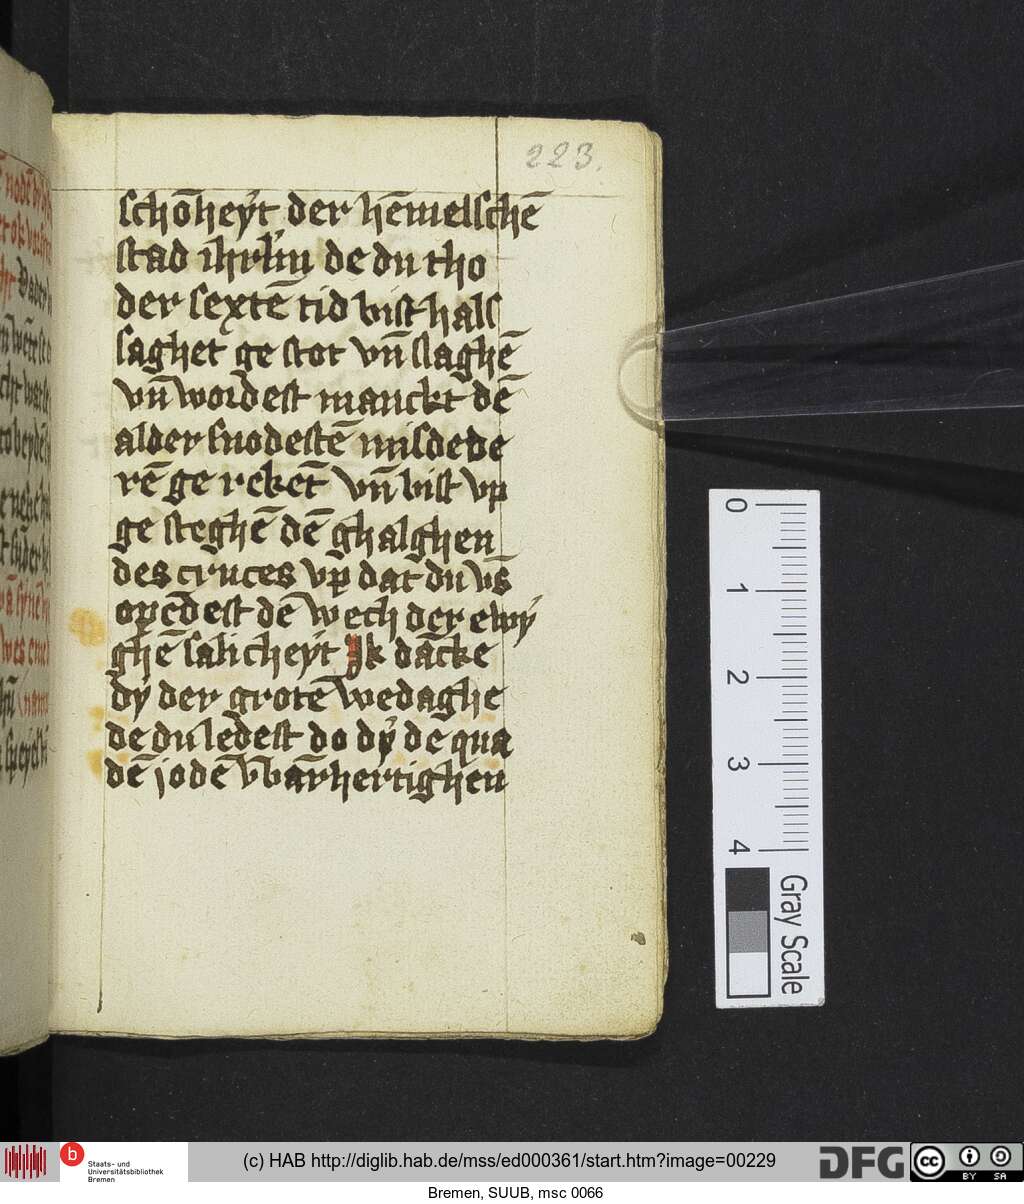 223.
schōheyt der hēmelschē
stad ihrl'm de du tho
der sextē tid bist hals
saghet ge stot vn̄ slaghē
vn̄ wordest manckt dē
alder snodestē misdede
rē ge rekēt vn̄ bist vp
ge steghē dē ghalghen
des cruces vp dat du vs̄
opēdest dē wech der ewy
ghē salicheyt Ik dācke
dy der grotē wedaghe
de du ledest do dy de qua
dē jodē vnbarhertighen
0
1
2
3
4
Gray Scale
b Staats- und
Universitätsbibliothek
Bremen
(c) HAB http://diglib.hab.de/mss/ed000361/start.htm?image=00229
DFG
cc
BY SA
Bremen, SUUB, msc 0066